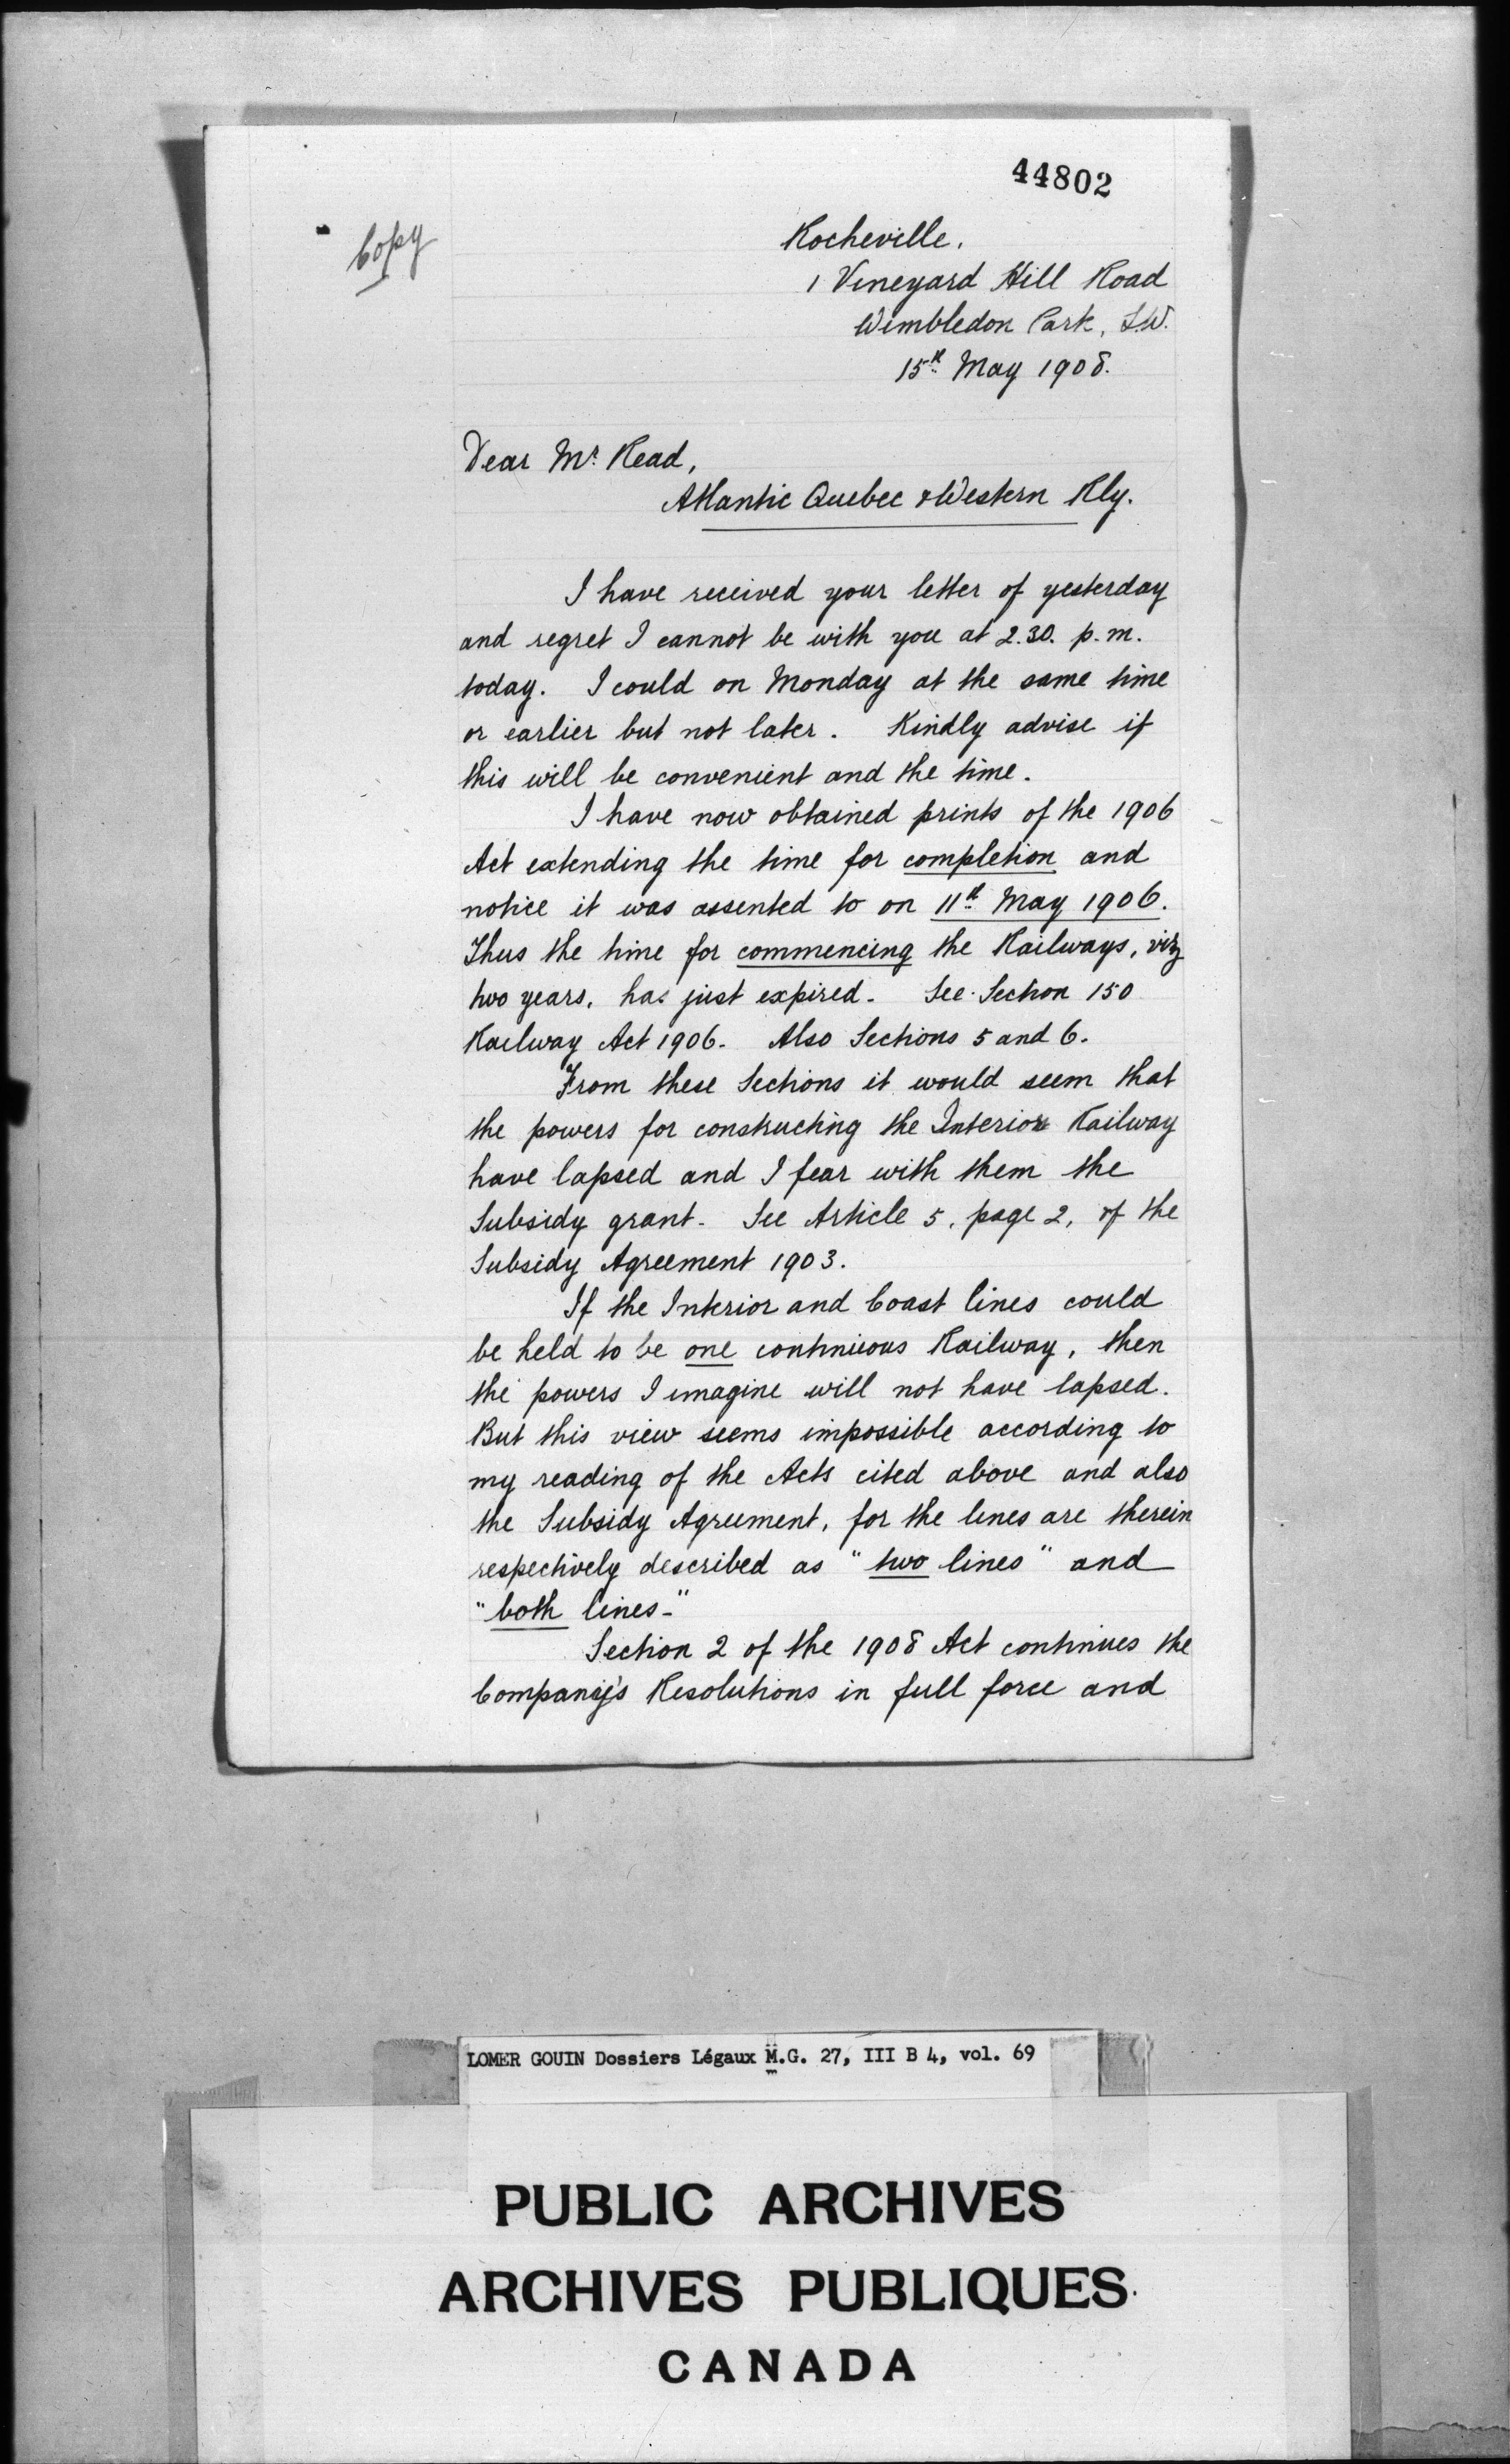 44802
Copy
Rocheville.
1 Vineyard Hill Road
Wimbledon Park, S.W.
15th May 1908.
Dear Mr. Read,
Atlantic Quebec & Western Rly.
I have received your letter of yesterday
and regret I cannot be with you at 2.30. p.m.
today. I could on Monday at the same time
or earlier but not later. Kindly advise if
this will be convenient and the time.
I have now obtained prints of the 1906
Act extending the time for completion and
notice it was assented to on 11th May 1906.
Thus the time for commencing the Railways, viz
two years, has just expired. See Section 150
Railway Act 1906. Also Sections 5 and 6.
From these Sections it would seem that
the powers for constructing the Interior Railway
have lapsed and I fear with them the
Subsidy grant. See Article 5, page 2, of the
Subsidy Agreement 1903.
If the Interior and Coast lines could
be held to be one continuous Railway, then
the powers I imagine will not have lapsed.
But this view seems impossible according to
my reading of the Acts cited above and also
the Subsidy Agreement, for the lines are therein
respectively described as "two lines" and
"both lines."
Section 2 of the 1908 Act continues the
Company's Resolutions in full force and
LOMER GOUIN Dossiers Légaux M.G. 27, III B 4, vol. 69
PUBLIC ARCHIVES
ARCHIVES PUBLIQUES
CANADA